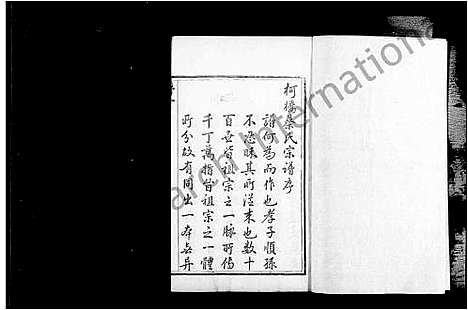 柯橋桑氏宗譜序
譜何為而作也孝子順孫
不忍昧其所從來也數十
百世皆祖宗之一脉所傳
千丁萬指皆祖宗之一體
所分故有同出一本無異
International